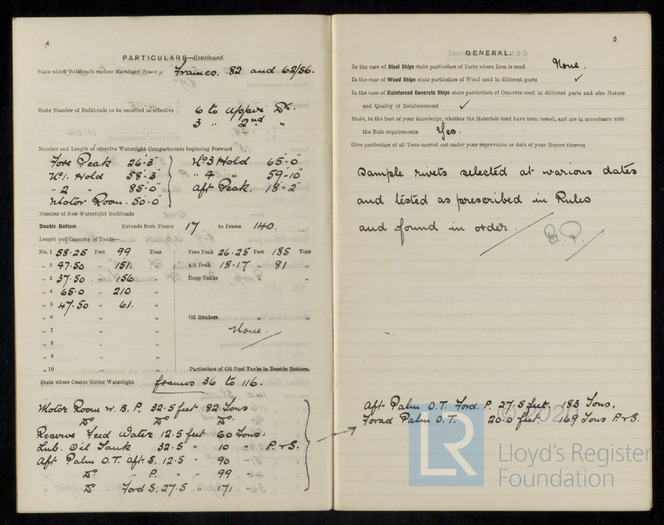 4
PARTICULARS—Continued.
State which Bulkheads enclose Machinery Space Frames. 82 and 62/56.
State Number of Bulkheads to be recorded as effective 6 to Upper Dk.
3 " 2nd "
Number and Length of effective Watertight Compartments beginning Forward
Fore Peak 26·3" No3 Hold 65·0"
No1. Hold 58·3" " 4 " 59-10"
" 2 " 85·0" Aft Peak. 18-2"
Motor Room. 50·0"
Number of Non-Watertight Bulkheads
Double Bottom Extends from Frame 17 to Frame 140.
Length and Capacity of Tanks—
No. 1 58·25 Feet 99 Tons Fore Peak 26·25 Feet 185 Tons
" 2 47·50 " 151. " Aft Peak 18·17 " 81 "
" 3 37·50 " 156 " Deep Tanks
" 4 65·0 " 210 "
" 5 47·50 " 61. "
" 6 " " Oil Bunkers " "
" 7 " " None.
" 8 " "
" 9 " "
" 10 " " Particulars of Oil Fuel Tanks in Double Bottom.
State where Centre Girder Watertight frames 36 to 116.
Motor Room W. B. P. 32·5 feet 82 Tons
Do Do Do
Reserve Feed Water 12·5 feet 60 Tons.
Lub. Oil Tank 32·5 " 10 " P & S.
Aft Palm O.T. aft S. 12·5 " 90 "
Do " P. " " 99
Do Ford S. 27·5 " 171 "
5
GENERAL.
In the case of Steel Ships state particulars of Parts where Iron is used None.
In the case of Wood Ships state particulars of Wood used in different parts ✓
In the case of Reinforced Concrete Ships state particulars of Concrete used in different parts and also Nature
and Quality of Reinforcement ✓
State, to the best of your knowledge, whether the Materials used have been tested, and are in accordance with
the Rule requirements Yes.
Give particulars of all Tests carried out under your supervision or date of your Report thereon
Sample rivets selected at various dates
and tested as prescribed in Rules
and found in order.
Aft Palm O.T. Ford. P. 27·5 feet. 183 Tons.
Forad Palm O.T. 20·0 feet 169 Tons P & S.
© 2020
LR
Lloyd's Register
Foundation